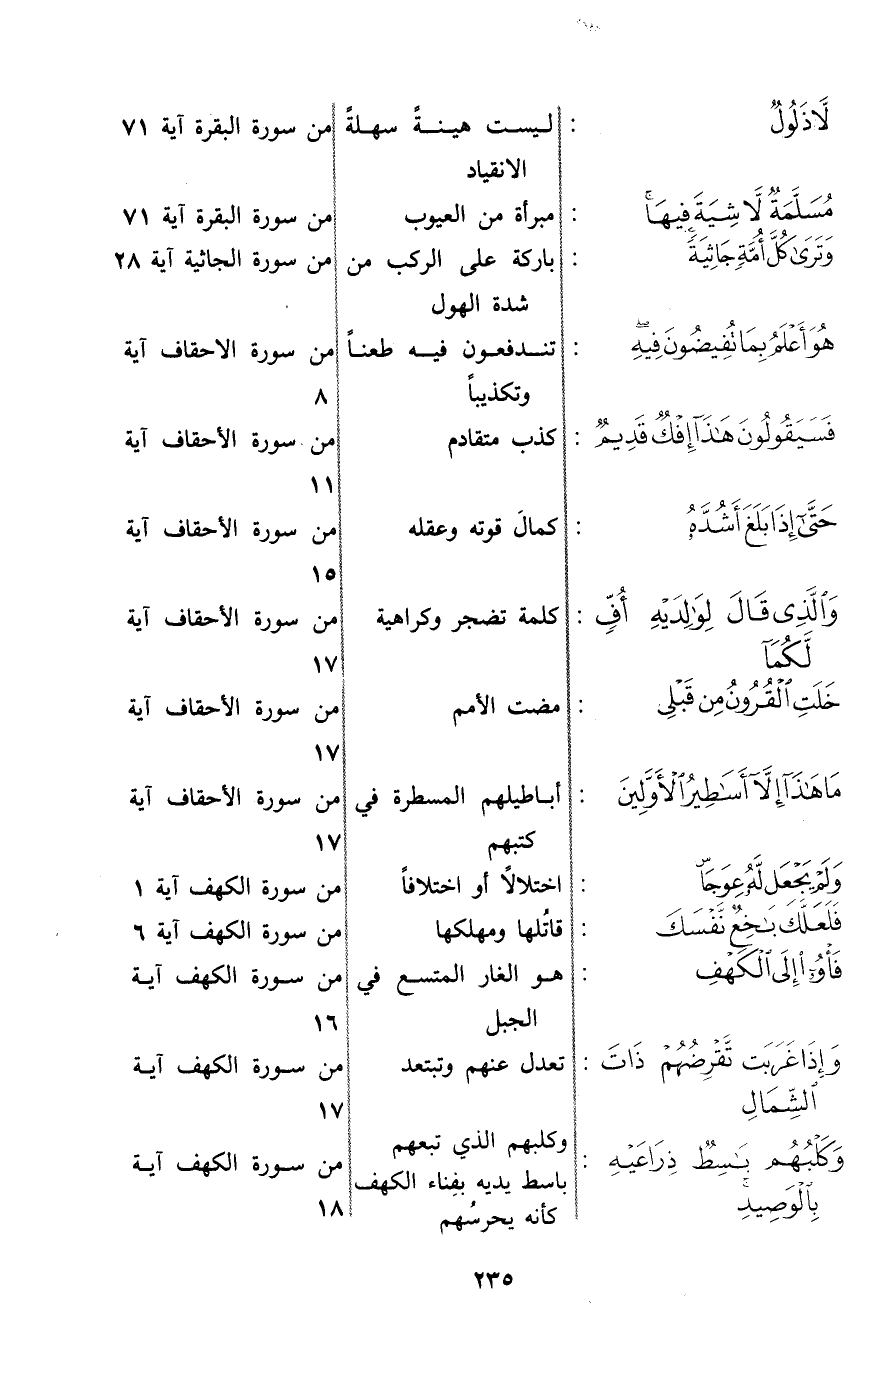 لَّا ذَلُولٌ : ليست هينةً سهلةً من سورة البقرة آية ٧١
الانقياد
مُسَلَّمَةٌ لَّا شِيَةَ فِيهَا ۚ : مبرأة من العيوب من سورة البقرة آية ٧١
وَتَرَىٰ كُلَّ أُمَّةٍ جَاثِيَةً ۚ : باركة على الركب من من سورة الجاثية آية ٢٨
شدة الهول
هُوَ أَعْلَمُ بِمَا تُفِيضُونَ فِيهِ ۖ : تندفعون فيه طعناً من سورة الاحقاف آية
وتكذيباً ٨
فَسَيَقُولُونَ هَٰذَآ إِفْكٌ قَدِيمٌ : كذب متقادم من سورة الأحقاف آية
١١
حَتَّىٰٓ إِذَا بَلَغَ أَشُدَّهُۥ : كمالَ قوته وعقله من سورة الأحقاف آية
١٥
وَٱلَّذِى قَالَ لِوَٰلِدَيْهِ أُفٍّ : كلمة تضجر وكراهية من سورة الأحقاف آية
لَّكُمَآ ١٧
خَلَتِ ٱلْقُرُونُ مِن قَبْلِى : مضت الأمم من سورة الأحقاف آية
١٧
مَا هَٰذَآ إِلَّآ أَسَٰطِيرُ ٱلْأَوَّلِينَ : أباطيلهم المسطرة في من سورة الأحقاف آية
كتبهم ١٧
وَلَمْ يَجْعَل لَّهُۥ عِوَجَا ۜ : اختلالاً أو اختلافاً من سورة الكهف آية ١
فَلَعَلَّكَ بَٰخِعٌ نَّفْسَكَ : قاتُلها ومهلكها من سورة الكهف آية ٦
فَأْوُۥٓا۟ إِلَى ٱلْكَهْفِ : هو الغار المتسع في من سورة الكهف آية
الجبل ١٦
وَإِذَا غَرَبَت تَّقْرِضُهُمْ ذَاتَ : تعدل عنهم وتبتعد من سورة الكهف آية
ٱلشِّمَالِ ١٧
وَكَلْبُهُم بَٰسِطٌ ذِرَاعَيْهِ : وكلبهم الذي تبعهم من سورة الكهف آية
باسط يديه بفِناء الكهف
بِٱلْوَصِيدِ ۚ كأنه يحرسُهم ١٨
٢٣٥